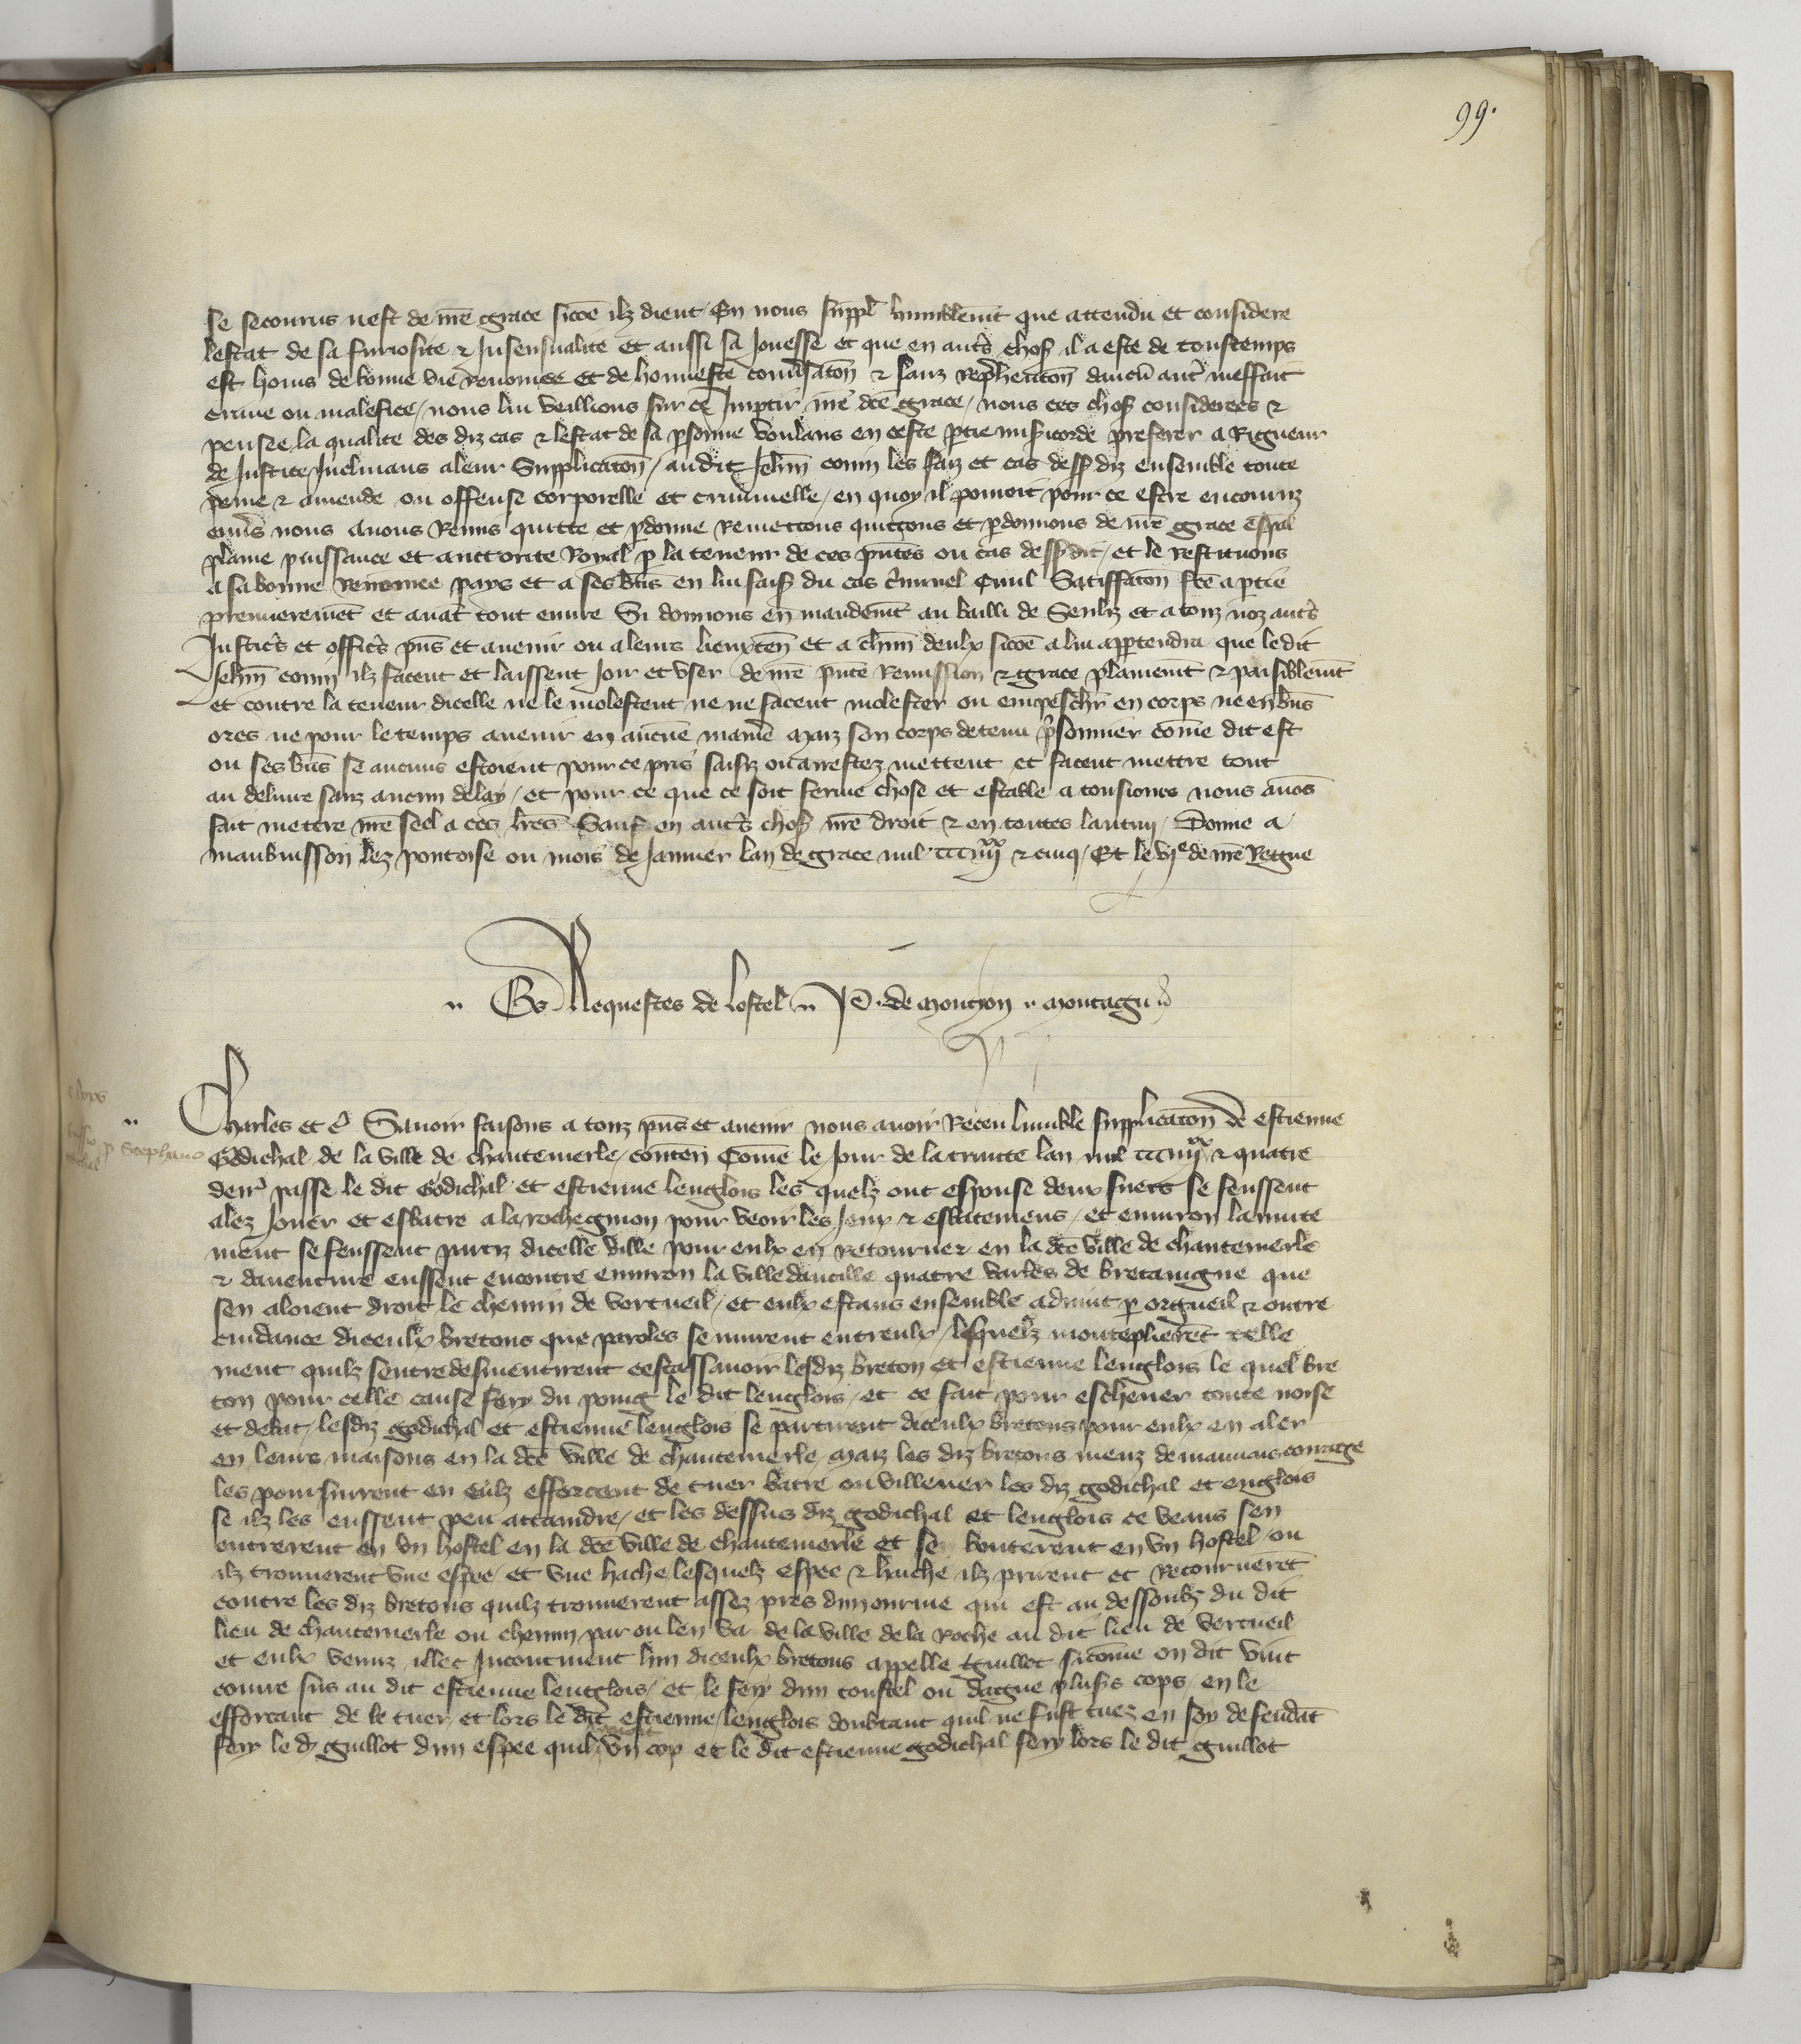 99.
se secourus nest de nr̃e grace sicõe ilz dient En nous suppl̃ humblem̃t que attendu et considere
lestat de sa furiosite & Insensualite et aussi sa Jonesse et que en autr̃s choſ il a este de tousteps
est homs de bonne vie renomee et de honneste conũsatõn & sanz rep̃hencõn daucũ autr̃ meffait
crime ou malefice / nous lui veillions sur ce Imp̃tir nr̃e dcẽ grace / nous ces choſ considerees &
pensee la qualite des diz cas & lestat de sa p̃sonne voulans en ceste p̃tie mis̃icorde preferer a Rigueur
de Justice Inclinans a leur Supplicatõn / audit Jeh̃n conin les faiz et cas dess̃ diz ensemble toute
peine & amende ou offense corporelle et criminelle / en quoy il pouroit pour ce estre encouruz
enũs nous auons Remis quitte et p̃donne Remettons quittons et p̃donnons de nr̃e grace esp̃al
plaine puissance et auctorite Royal p̃ la teneur de ces p̃ntes ou cas dess̃dit / et le restituons
a sa bonne renomee pays et a ses biẽs en lui faiſ du cas c̃iminel Ciuil Satisfatõn fcẽ a p̃tie
premieremẽt et auãt tout euure Si donnons en mandem̃t au bailli de Senliz et a touz noz autr̃s
Justicr̃s et officr̃s p̃ns et auenir ou a leurs lieuxteñ et a ch̃un deulx sicõe a lui app̃tendra que ledit
Jeh̃n conin ilz facent et laissent Joir et vser de nr̃e p̃nte Remission & grace plainem̃t & paisiblem̃t
et contre la teneur dicelle ne le molestent ne ne facent molester ou empeschr̃ en corps ne en biẽs
ores ne pour le temps auenir en aucũe manĩe maiz son corps detenu p̃sonnier cõme dit est
ou ses biẽs se aucuns estoient pour ce pris saisiz ou arrestez mettent et facent mettre tout
au deliure sanz aucun delay / et pour ce que ce soit ferme chose et estable a tousiours nous auõs
fait mettre nr̃e seel a ces lr̃es Sauf en autr̃s choſ nr̃e droit & en toutes lautruy / Donne a
maubuisson lez pontoise ou mois de Januier lan de grace mil CCCiiiiˣˣ & cinq / Et le vjᵉ de nr̃e Regne
Es Requestes de lostel P. de monchon montagu
p Stephano
Charles et c̃ Sauoir faisons a touz p̃ns et auenir nous auoir Receu humble supplicatõn de estienne
Godichal de la ville de chantemerle / conteñ Comẽ le Jour de la trinite lan mil CCCiiiiˣˣ & quatre
derr̃ passe le dit Godichal et estienne lenglois les quelz ont espouse deux suers se feussent
alez Jouer et esbatre a la rocheguion pour veoir les Jeux & esbatemens / et enuiron la nuite
ment se feussent partiz dicelle ville pour eulx en retourner en la dcẽ ville de chantemerle
& dauenture eussent encontre enuiron la ville dautille quatre varles de bretaingne que
sen aloient droit le chemin de vertueil / et eulx estans ensemble aduint p̃ orgueil & oultre
cuidance diceulx bretons que paroles se murent entreulx / lesquelz monteplierẽt telle
ment quilz sentredesmentirent cestassauoir lesdiz breton et estienne lenglois le quel bre
ton pour celle cause fery du poing le dit lenglois / et ce fait pour escheuer toute noise
et debat / lesdiz godichal et estienne lenglois se partirent diceulx bretons pour eulx en aler
en leurs maisons en la dcẽ ville de chantemerle / maiz les diz bretons meuz de mauuais courage
les poursuirent en eulz efforcent de tuer batre ou villener les diz godichal et englois
se ilz les eussent peu attaindre / et les dessus diz godichal et lenglois ce veans sen
entrerent en vn hostel en la dcẽ ville de chantemerle et se bouterent en vn hostel / ou
ilz trouuerent vne espee / et vne hache lesquelz espee & hache ilz prirent et Retournerẽt
contre les diz bretons quilz trouuerent assez pres dun ourme qui est au dessoubz du dit
lieu de chantemerle ou chemin par ou len va de la ville de la Roche au dit lieu de vertueil
et eulx venuz illec Incontinent lun diceulx bretons appelle guillot sicõme on dit vint
courre sus au dit estienne lenglois / et le fery dun coustel ou dague plusr̃s cops / en le
efforcant de le tuer / et lors le dit estienne lenglois doubtant quil ne fust tuez en soy defendãt
fery le d̃ guillot dun espee quil auoit vn cop et le dit estienne godichal fery lors le dit guillot